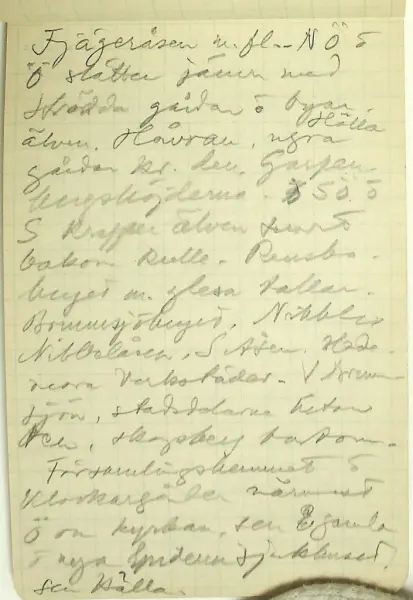 Fjägeråsen m. fl. - NÖ ö
Ö slätten jämn med
strödda gårdar ö byar,
älven, Håvran, några Hälla
gårdar kr. den, Garpen
bergshöjderna. SÖ ö
S älven
bakom kulle.
berget m. glesa tallar.
Brunnsjöberget, Nibble
Nibbleåsen, S Åsen, Hede
mora Verkstäder. V Brunn
sjön, stadsdelarna
skogsberg bortom.
Församlingshemmet ö
Klockargården närmast
Ö om kyrkan, sen gamla
ö nya Epidemisjukhuset,
sen Hälla.